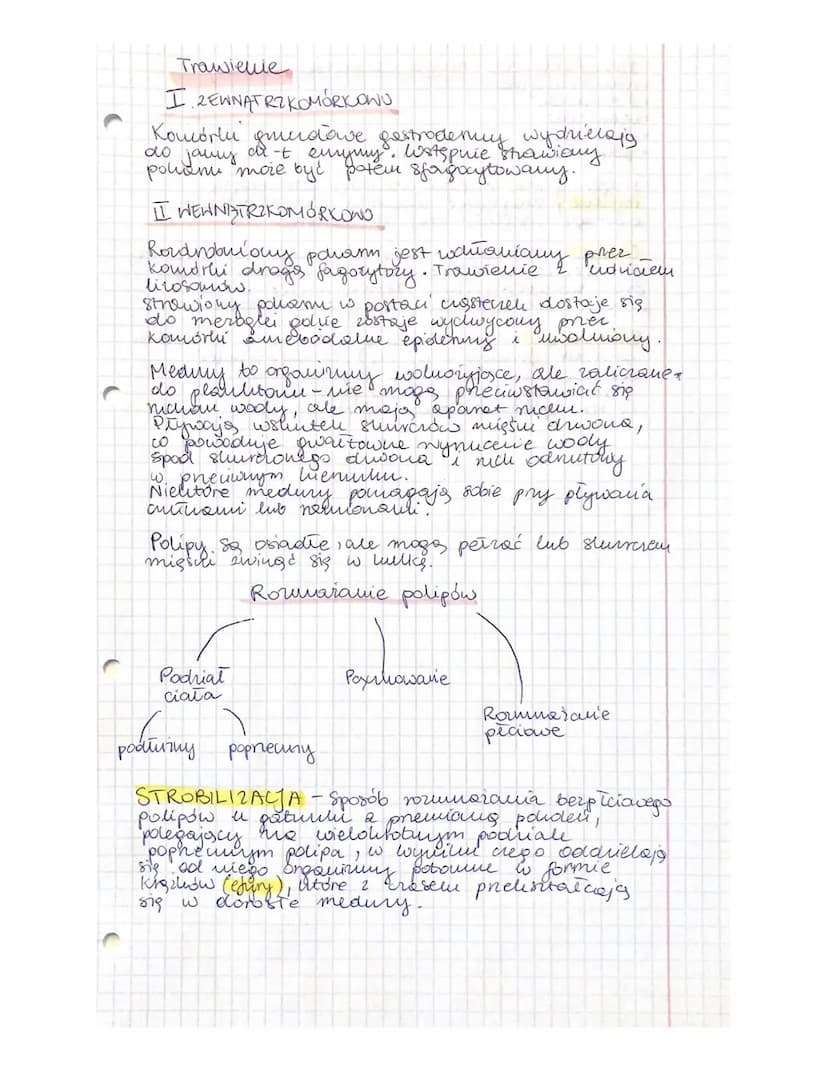 Trawienie
I. ZEWNĄTRZKOMÓRKOWO
Komórki gruczołowe gastrodermy wydzielają
do jamy ch-t enzymy. Wstępnie strawiony
pokarm może być potem sfagocytowany.
II WEWNĄTRZKOMÓRKOWO
Rozdrobniony pokarm jest wchłaniany przez
komórki drogą fagocytozy. Trawienie z udziałem
lizosomów.
Strawiony pokarm w postaci cząsteczek dostaje się
do mezoglei gdzie zostaje wychwycony przez
komórki ameboidalne epidermy i uwolniony.
Meduzy to organizmy wolnożyjące, ale zaliczane
do planktonu - nie mogą przeciwstawiać się
ruchom wody, ale mają aparat ruchu.
Pływają wskutek skurczów mięśni dzwona,
co powoduje gwałtowne wyrzucenie wody
spod skurczonego dzwona i ruch odrzutowy
w przeciwnym kierunku.
Niektóre meduzy pomagają sobie przy pływaniu
czułkami lub ramionami.
Polipy są osiadłe, ale mogą pełzać lub skurczem
mięśni zwinąć się w kulkę.
Rozmnażanie polipów
Podział Pączkowanie
ciała
Rozmnażanie
płciowe
podłużny poprzeczny
STROBILIZACJA - Sposób rozmnażania bezpłciowego
polipów u gatunków z przemianą pokoleń,
polegający na wielokrotnym podziale
poprzecznym polipa, w wyniku czego oddzielają
się od niego organizmy potomne w formie
krążków (efyry), które z czasem przekształcają
się w dorosłe meduzy.